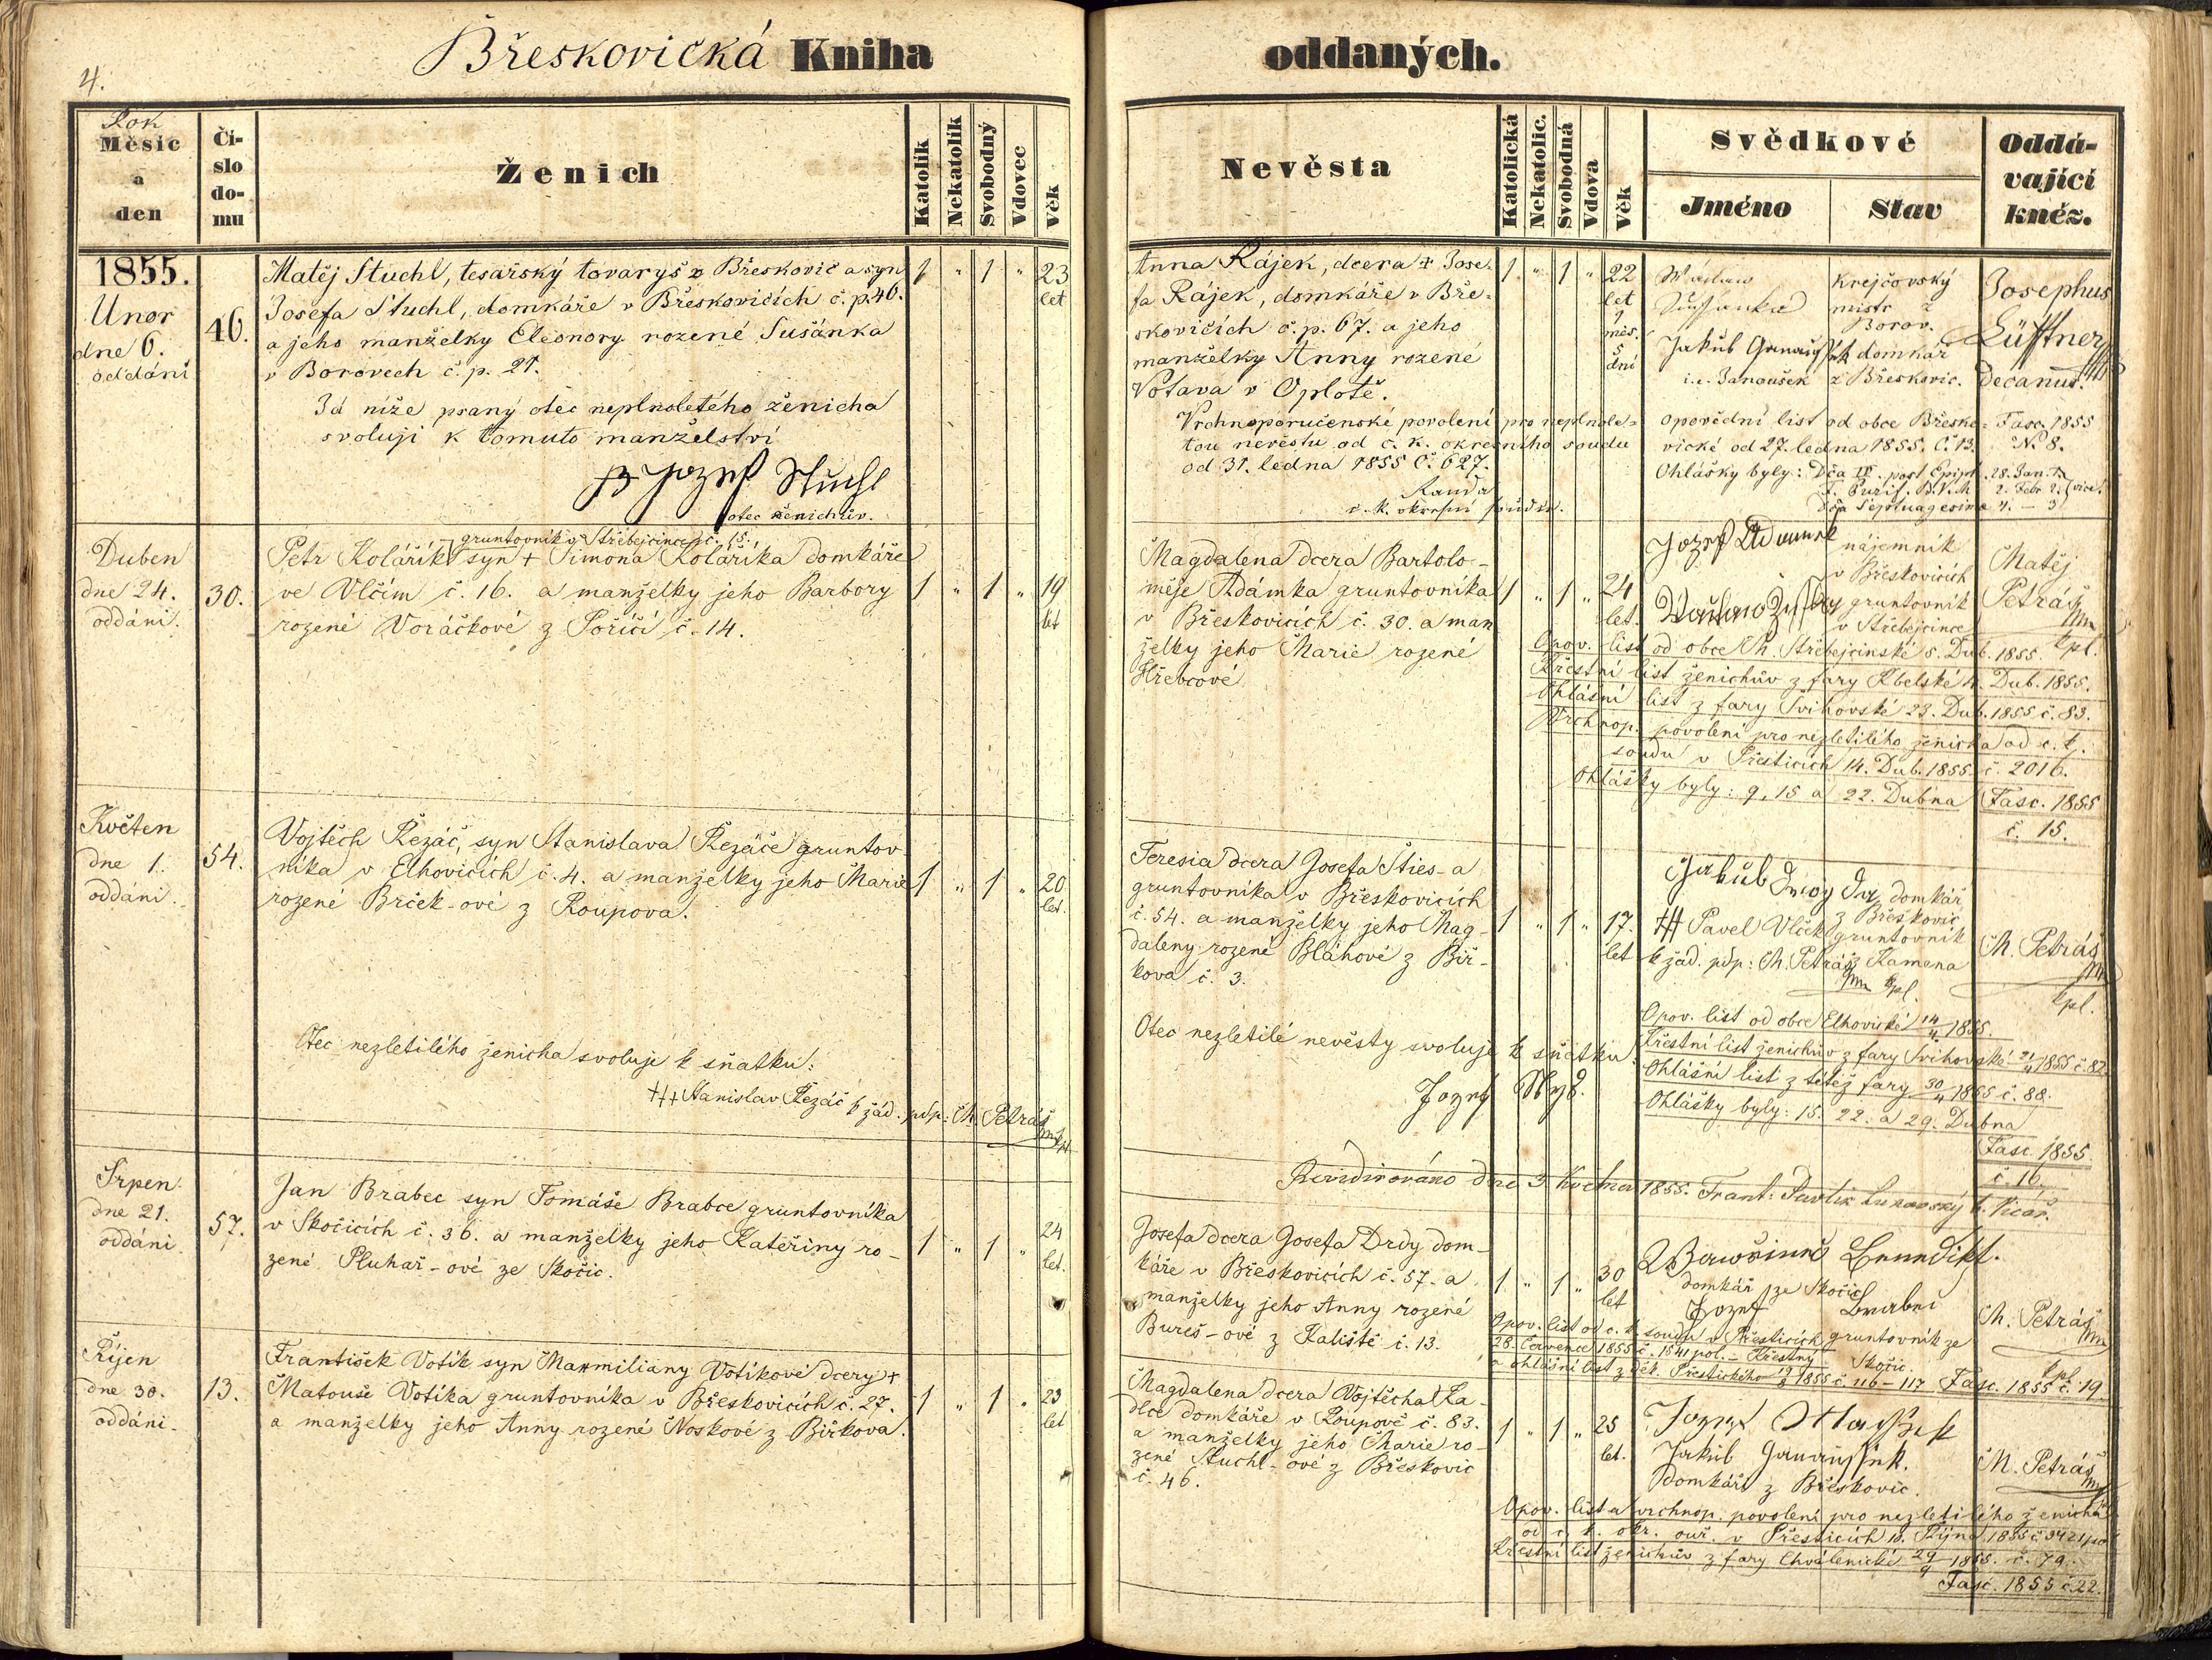 4.
Břeskovická Kniha oddaných.
Rok
Měsíc
a
den
Čí-
slo
do-
mu
Ženich
Katolík
Nekatolík
Svobodný
Vdovec
Věk
Nevěsta
Katolická
Nekatolic.
Svobodná
Vdova
Věk
Svědkové
Jméno
Stav
Oddá-
vající
kněz.
1855.
Unor
dne 6.
oddáni
46.
Matěj Stuchl, tesařský tovaryš z Břeskovic a syn
Josefa Stuchl, domkáře v Břeskovicích č. p. 46.
a jeho manželky Eleonory rozené Sušánka
v Borovech č. p. 21.
Já níže psaný otec neplnoletého ženicha
svoluji k tomuto manželství
Jozef Stuchl
otec ženichův.
1 " 1 " 23
let
Anna Rájek, dcera † Jose-
fa Rájek, domkáře v Bře-
skovicích č. p. 67. a jeho
manželky Anny rozené
Votava v Oplotě.
Vrchnoporučenské povolení pro neplnole-
tou nevěstu od c. k. okresního soudu
od 31. ledna 1855 č. 627.
Randa
c. k. okresní soudce.
1 " 1 " 22
let
9
měs.
5
dní
Krejčovský
mistr z
Borov.
Jakub Janoušek domkář
i.e. Janoušek z Břeskovic.
Josephus
Lüftner
Decanus.
opovědní list od obce Břesko-
vické od 27. ledna 1855. č. 13.
Fasc. 1855
N. 8.
Ohlášky byly: Dca III. post Epiph. 28. Jan. 1.
F. Purif. B.V.M. 2. Febr. 2.
Dca Septuagesima 4. – 3
Duben
dne 24.
oddáni.
30.
gruntovník v Střebejcince č. 15.
Petr Kolářík syn † Simona Koláříka domkáře
ve Vlčím č. 16. a manželky jeho Barbory
rozené Voráčkové z Poříčí č. 14.
1 " 1 " 19
let
Magdalena dcera Bartolo-
měje Adámka gruntovníka
v Břeskovicích č. 30. a man
želky jeho Marie rozené
Hřebcové
1 " 1 " 24
let.
Jozef Adamek
nájemník
v Břeskovicích
gruntovník
v Střebejcince
Matěj
Petráš
mp
kpl.
Opov. list od obce Ch. Střebejcinské 5. Dub. 1855.
Křestní list ženichův z fary Kbelské 11. Dub. 1855.
Ohlášní list z fary Švihovské 23. Dub. 1855 č. 83.
Vrchnop. povolení pro nezletilého ženicha od c. k.
soudu v Přesticích 14. Dub. 1855 č. 2016.
Ohlášky byly: 9, 15 a 22. Dubna
Fasc. 1855
č. 15.
Květen
dne 1.
oddáni.
54.
Vojtěch Řezáč, syn Stanislava Řezáče gruntov
níka v Elhovicích č. 4. a manželky jeho Marie
rozené Brček-ové z Roupova.
1 " 1 " 20
let.
Otec nezletilého ženicha svoluje k sňatku:
††† Stanislav Řezáč k žád. pdp: M. Petráš
Teresia dcera Josefa Sties-a
gruntovníka v Břeskovicích
č. 54. a manželky jeho Mag-
daleny rozené Bláhové z Bir-
kova č. 3.
Otec nezletilé nevěsty svoluje k sňatku.
1 " 1 " 17.
let
domkář
z Břeskovic
††† Pavel Vlček gruntovník
k žád. pdp: M. Petráš z Kamena
mp kpl.
M. Petráš
mp
kpl.
Opov. list od obce Elhovické 14/4 1855.
Křestní list ženichův z fary Švihovské 21/4 1855 č. 82
Ohlášní list z též fary 30/4 1855 č. 88.
Ohlášky byly: 15. 22. a 29. Dubna
Fasc. 1855.
č. 16.
Revidirováno dne 3 Května 1855. Frant: Pavlík Lukavský b. Vicář.
Srpen
dne 21.
oddáni.
57.
Jan Brabec syn Tomáše Brabce gruntovníka
v Skočicích č. 36. a manželky jeho Kateřiny ro-
zené Pluhař-ové ze Skočic.
1 " 1 " 24
let.
Josefa dcera Josefa Drdy dom-
káře v Břeskovicích č. 57. a
manželky jeho Anny rozené
Bureš-ové z Kaliště č. 13.
1 " 1 " 30
let
Wawřinec Benedikt.
domkář ze Skočic
Jozef
gruntovník ze
Skočic.
M. Petráš
mp
kpl.
Opov. list od c. k. soudu v Přesticích
28. Července 1855 č. 1541 pol. – Křestný
a ohlášní list z děk. Přestického 19/8 1855 č. 116–117
Fasc. 1855 č. 19
Říjen
dne 30.
oddáni.
13.
František Votík syn Maxmiliány Votíkové dcery †
Matouše Votíka gruntovníka v Břeskovicích č. 27.
a manželky jeho Anny rozené Noskové z Birkova.
1 " 1 " 23
let
Magdalena dcera Vojtěcha Ka-
dlce domkáře v Roupově č. 83.
a manželky jeho Marie ro-
zené Stuchl-ové z Břeskovic
č. 46.
1 " 1 " 25
let.
Jakub Janoušek.
domkáři z Břeskovic.
M. Petráš
Opov. list a vrchnop. povolení pro nezletilého ženicha
od c. k. okr. ouř. v Přesticích 18. Října 1855 č. 3421 pol
Křestní list ženichův z fary Chválenické 29/9 1855. č. 79.
Fasc. 1855 č. 22.